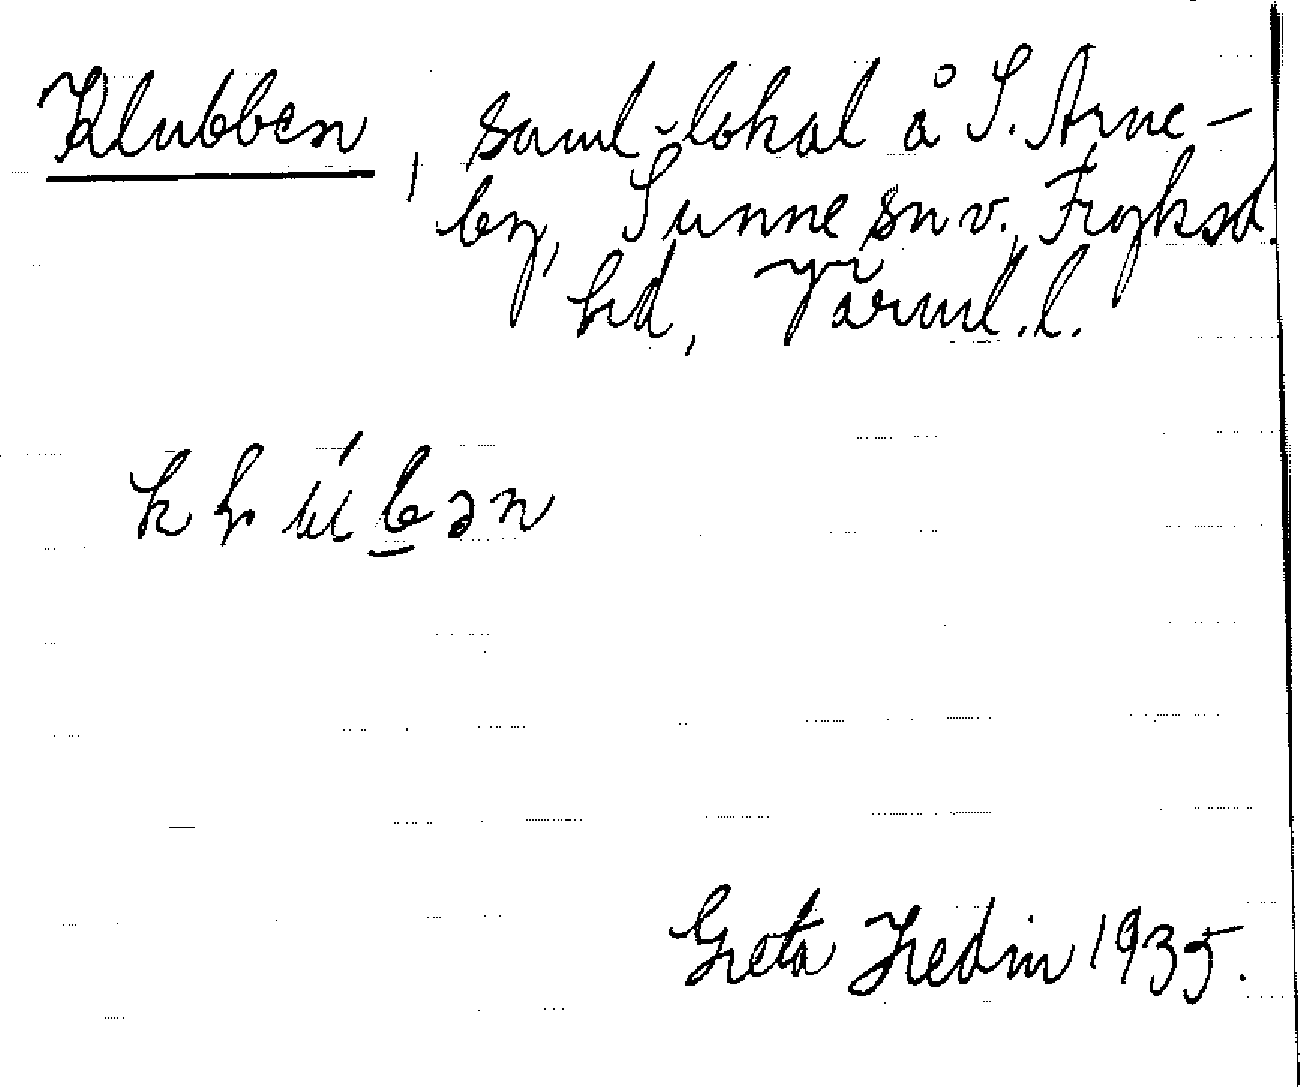 Klubben, saml-lokal å S. Arne-
by, Sunne sn v., Fryksd.
hd, Värml. l.
Greta Hedin 1935.